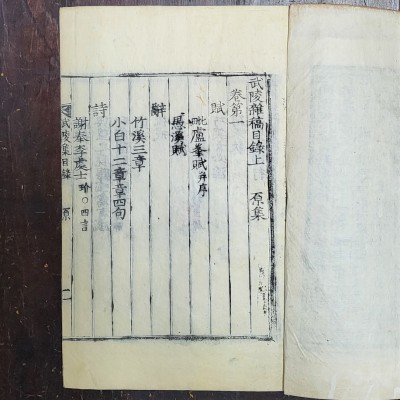 武陵雜稿目錄上 原集
卷第一
賦
毗盧峯賦 并序
愚溪賦
辭
竹溪三章
小白十二章章四句
詩
謝泰李處士 琦○四言
武陵集目錄 原 一